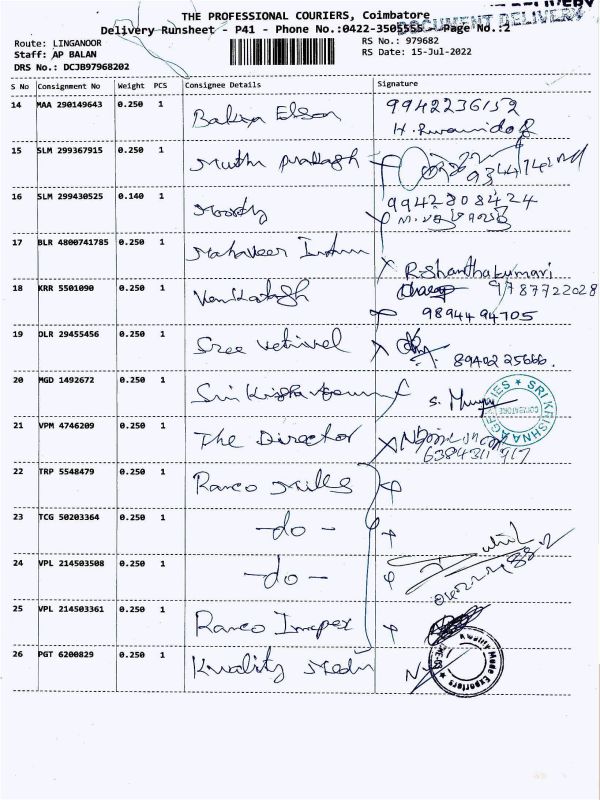 THE PROFESSIONAL COURIERS, Coimbatore
DOCUMENT DELIVERY
Delivery Runsheet - P41 - Phone No.:0422-3505555 - Page No.:2
Route: LINGANOOR
RS No.: 979682
Staff: AP BALAN
RS Date: 15-Jul-2022
DRS No.: DCJB97968202
S No Consignment No Weight PCS Consignee Details Signature
14 MAA 290149643 0.250 1 9942236152
15 SLM 299367915 0.250 1 Muthu prakash
16 SLM 299430525 0.140 1 Moorthy 9942808424
17 BLR 4800741785 0.250 1 Mahaveer R. Shanthakumari
9787722028
18 KRR 5501090 0.250 1 Venkatesh 9894494705
19 DLR 29455456 0.250 1 Sree vetrivel 8940225666.
20 MGD 1492672 0.250 1 Sri Krishna S.
SRI KRISHNA AGENCIES
COIMBATORE
21 VPM 4746209 0.250 1 The Director
6384311917
22 TRP 5548479 0.250 1 Ramco Mills
23 TCG 50203364 0.250 1 -do-
24 VPL 214503508 0.250 1 -do-
25 VPL 214503361 0.250 1 Ramco Impex
26 PGT 6200829 0.250 1 Kwality
Kwality Mode Exporters